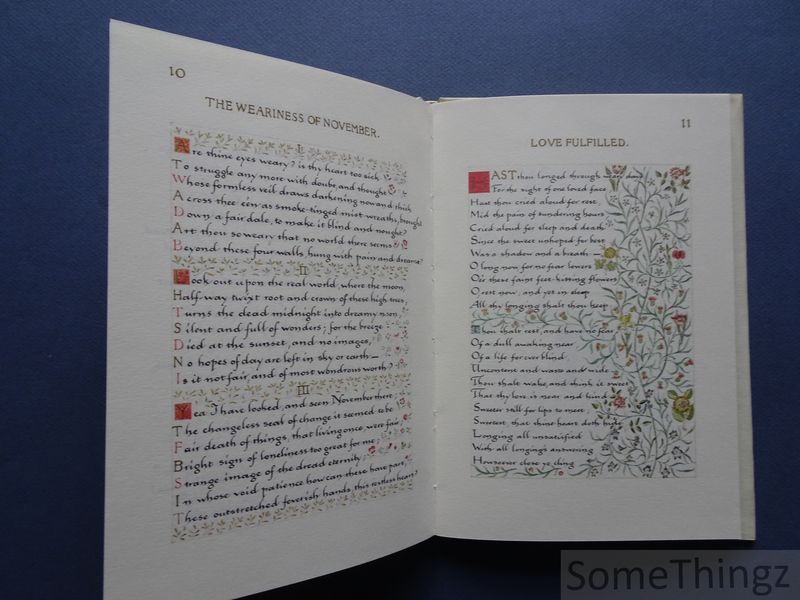 10
THE WEARINESS OF NOVEMBER.
I
Are thine eyes weary? is thy heart too sick
To struggle any more with doubt and thought
Whose formless veil draws darkening now and thick
Across thee e'en as smoke-tinged mist wreaths brought
Down a fair dale, to make it blind and nought?
Art thou so weary that no world there seems
Beyond these four walls, hung with pain and dreams?
II
Look out upon the real world, where the moon,
Half-way twixt root and crown of these high trees,
Turns the dead midnight into dreamy noon,
Silent and full of wonders, for the breeze
Died at the sunset, and no images,
No hopes of day are left in sky or earth—
Is it not fair, and of most wondrous worth?
III
Yea I have looked, and seen November there,
The changeless seal of change it seemed to be
Fair death of things, that living once were fair,
Bright sign of loneliness too great for me,
Strange image of the dread eternity
In whose void patience how can these have part
These outstretched feverish hands, this restless heart?
11
LOVE FULFILLED.
HAST thou longed through weary days
For the sight of one loved face
Hast thou cried aloud for rest,
Mid the pain of sundering hours
Cried aloud for sleep and death
Since the sweet unhoped for best
Was a shadow and a breath—
O long now for no fear lowers
O'er these faint feet-kissing flowers
O rest now, and yet in sleep
All thy longing shalt thou keep
Thou shalt rest, and have no fear
Of a dull awaking near
Of a life for ever blind
Uncontent and waste and wide
Thou shalt wake and think it sweet
That thy love is near and kind
Sweeter still for lips to meet
Sweetest that thine heart doth hide
Longing all unsatisfied
With all longing's answering
Howsoever close ye cling
SomeThingz